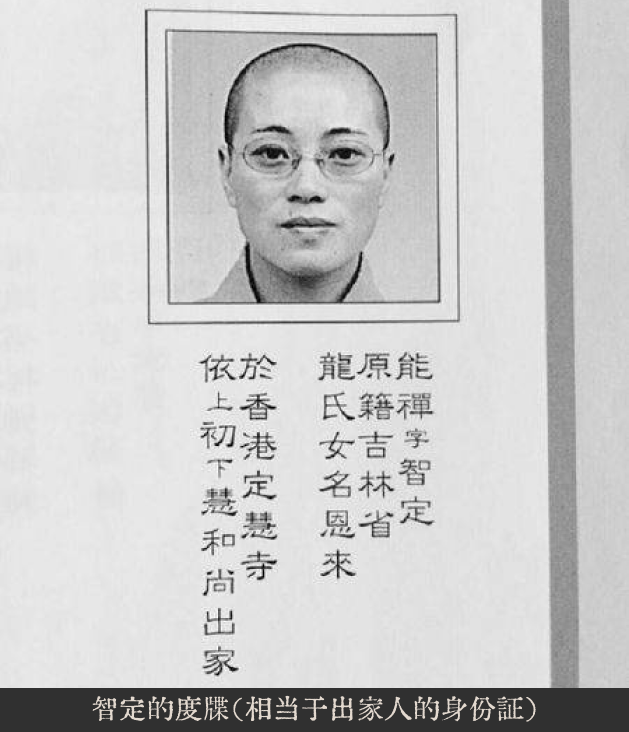 能禪字智定
原籍吉林省
龍氏女名恩來
於香港定慧寺
依上初下慧和尚出家
智定的度牒(相当于出家人的身份証)